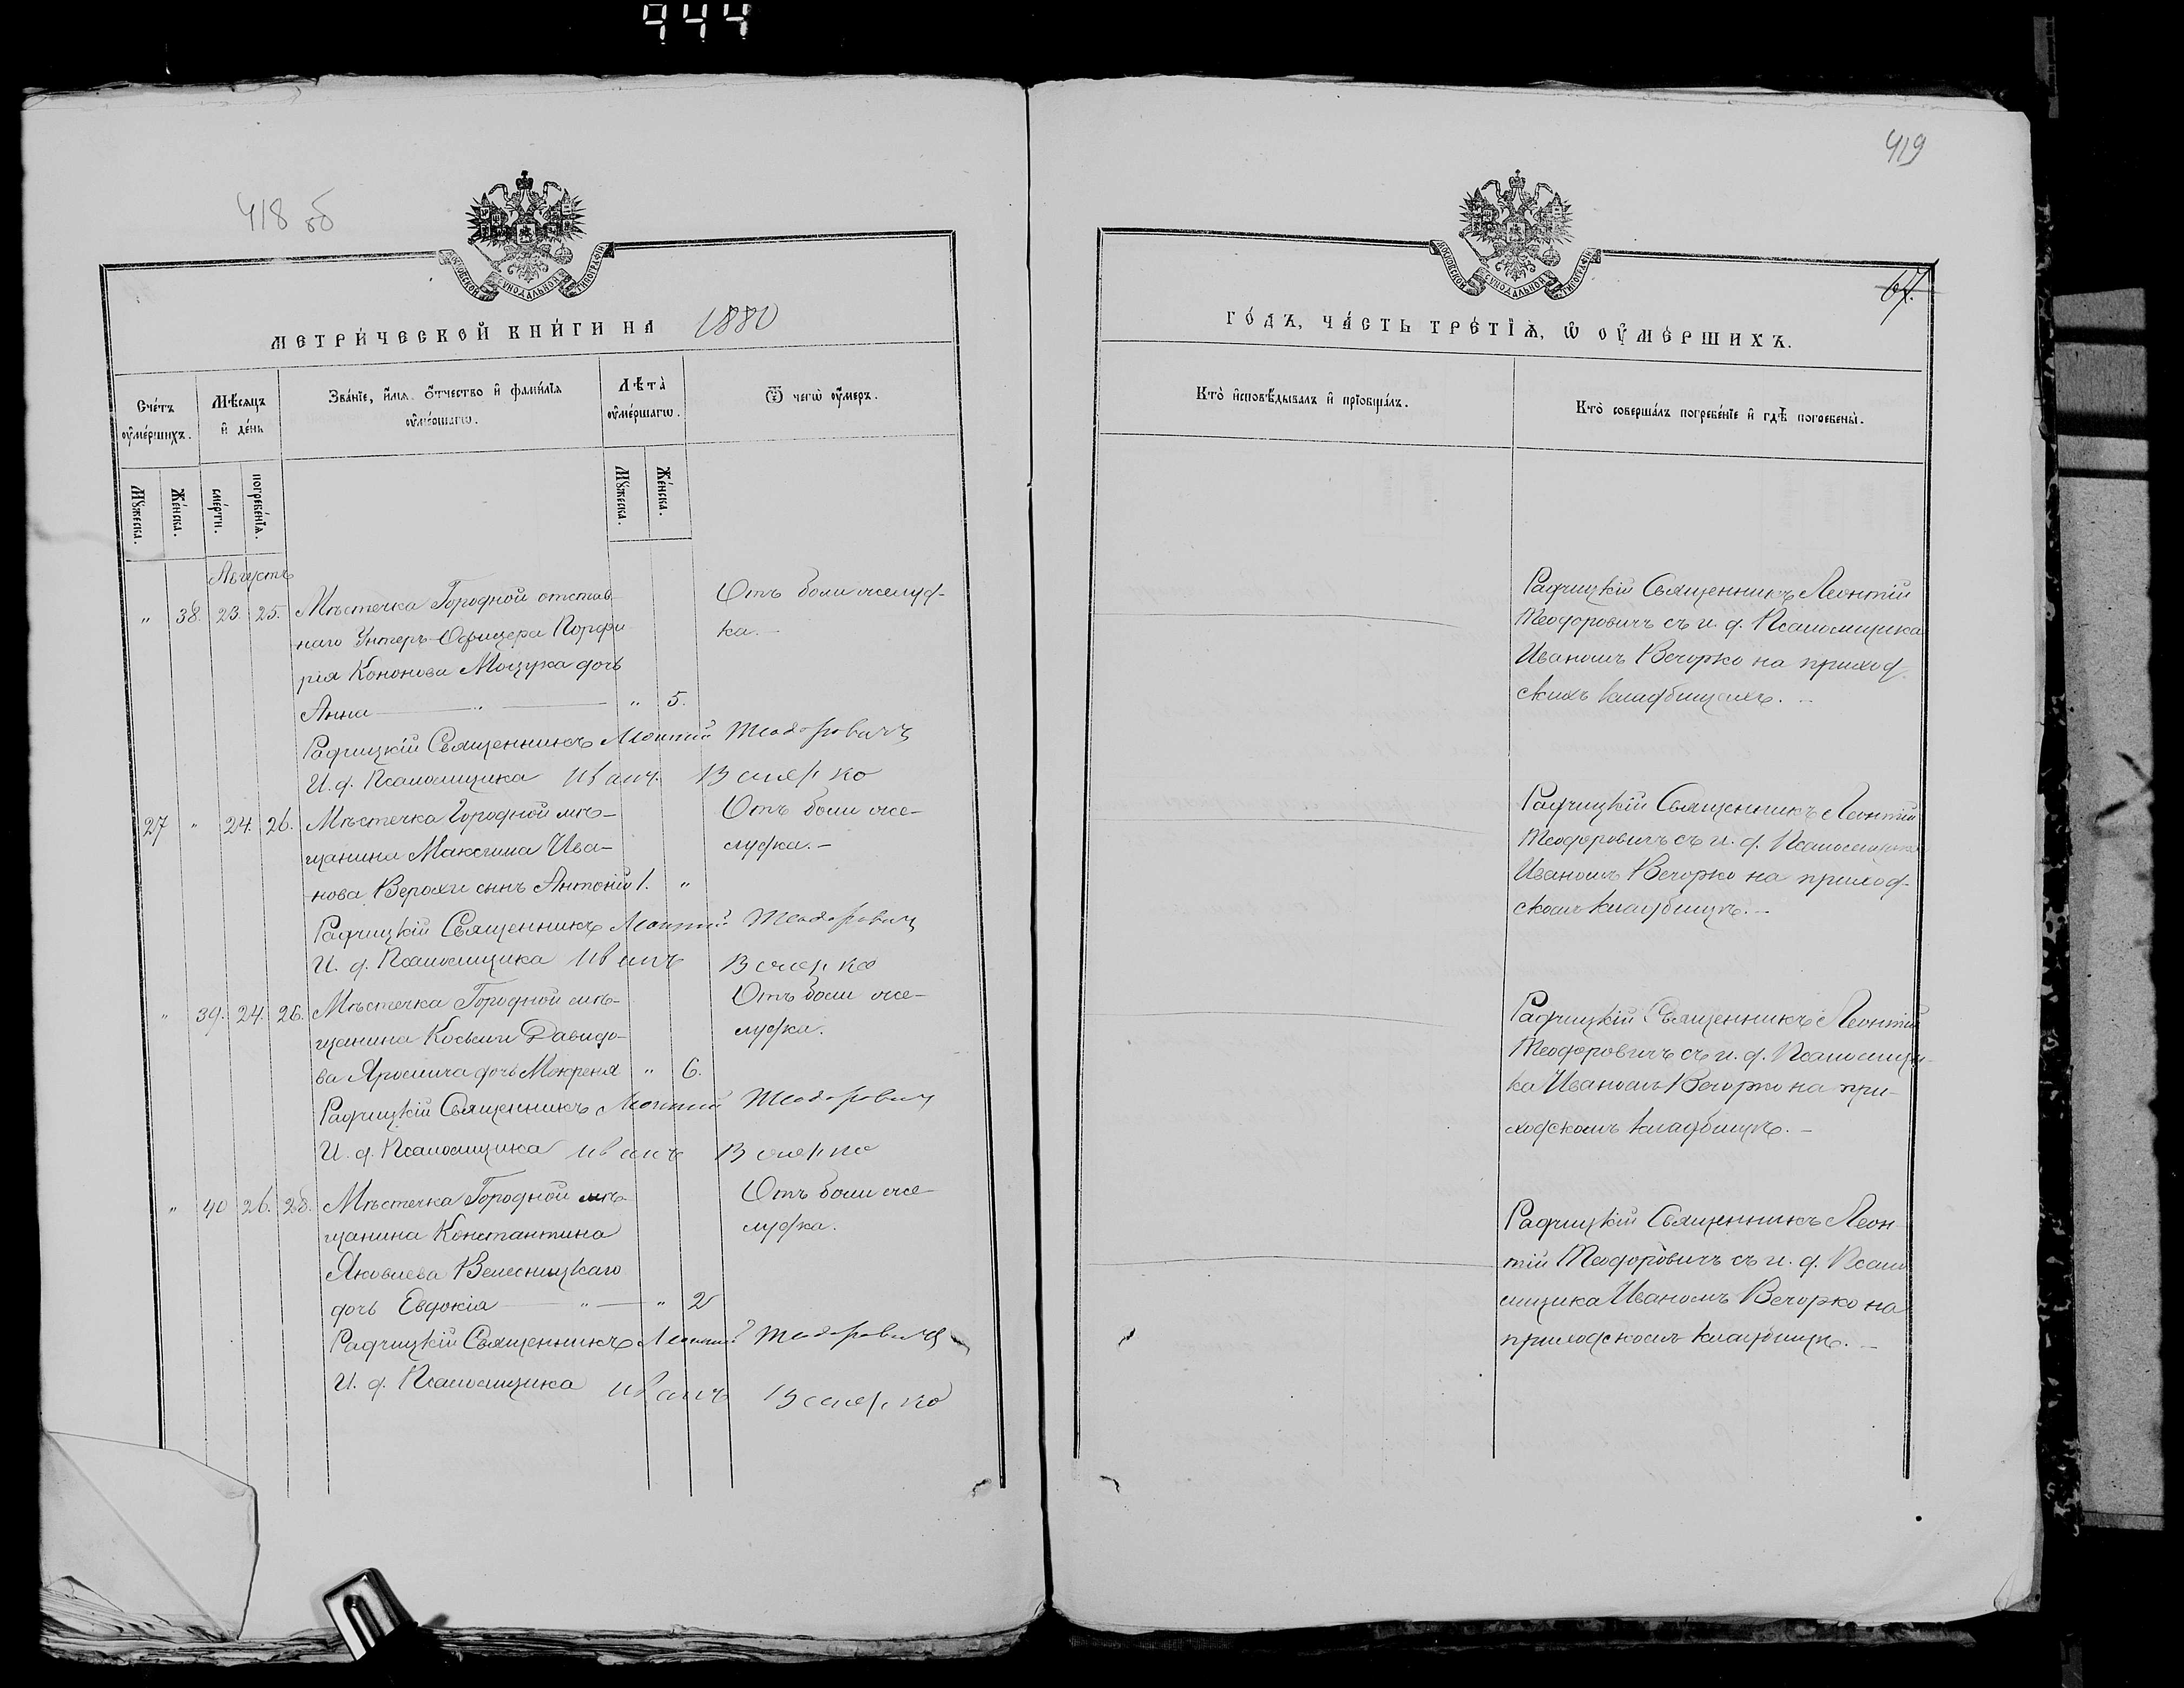 944
418 об
МОСКОВСКОЙ СѴНОДАЛЬНОЙ ТИПОГРАФІИ
МЕТРИ́ЧЕСКОЙ КНИ́ГИ НА 1880
Сче́тъ оу҆ме́ршихъ.
Мѣ́сяцъ и҆ де́нь
Зва́нїе, и҆́мѧ ѻ҆́тчество и҆ фами́лїѧ оу҆ме́ршагѡ.
Лѣ́та̀ оу҆ме́ршагѡ.
Ѿ чегѡ̀ оу҆́меръ.
Мꙋ́жеска.
Же́нска.
сме́рти.
погребе́нїѧ.
Мꙋ́жеска.
Же́нска.
Августъ
" 38. 23. 25. Мѣстечка Городной отстав-
наго Унтеръ-Офицера Порфи-
рія Кононова Мощука дочь
Анна " " 5.
Отъ боли желуд-
ка.—
Радчицкій Священникъ Леонтій Теодоровичъ
И. д. Псаломщика Иванъ Вечорко
27 " 24. 26. Мѣстечка Городной мѣ-
щанина Максима Ива-
нова Верохи сынъ Антоній 1. "
Отъ боли же-
лудка.—
Радчицкій Священникъ Леонтій Теодоровичъ
И. д. Псаломщика Иванъ Вечорко
" 39. 24. 26. Мѣстечка Городной мѣ-
щанина Косьмы Давидо-
ва Яромича дочь Мокрена " 6.
Отъ боли же-
лудка.
Радчицкій Священникъ Леонтій Теодоровичъ
И. д. Псаломщика Иванъ Вечорко
" 40 26. 28. Мѣстечка Городной мѣ-
щанина Константина
Яковлева Велесницкаго
дочь Евдокія " " 2
Отъ боли же-
лудка.
Радчицкій Священникъ Леонтій Теодоровичъ
И. д. Псаломщика Иванъ Вечорко
419
67.
МОСКОВСКОЙ СѴНОДАЛЬНОЙ ТИПОГРАФІИ
ГО́ДЪ, ЧА́СТЬ ТРЕ́ТЇѦ, Ѡ҆ ОУ҆МЕ́РШИХЪ.
Кто̀ и҆сповѣ́дывалъ и҆ прїѡбща́лъ.
Кто̀ соверша́лъ погребе́нїе и҆ гдѣ̀ погребены̀.
Радчицкій Священникъ Леонтій
Теодоровичъ съ и. д. Псаломщика
Иваномъ Вечорко на приход-
скихъ кладбищахъ.—
Радчицкій Священникъ Леонтій
Теодоровичъ съ и. д. Псаломщика
Иваномъ Вечорко на приход-
скомъ кладбищѣ.—
Радчицкій Священникъ Леонтій
Теодоровичъ съ и. д. Псаломщи-
ка Иваномъ Вечорко на при-
ходскомъ кладбищѣ.—
Радчицкій Священникъ Леон-
тій Теодоровичъ съ и. д. Псало-
мщика Иваномъ Вечорко на
приходскомъ кладбищѣ.—